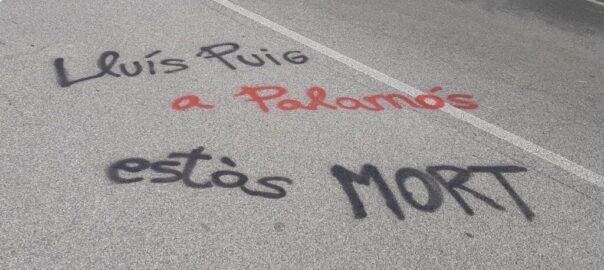 Lluís Puig
a Palamós
estàs MORT